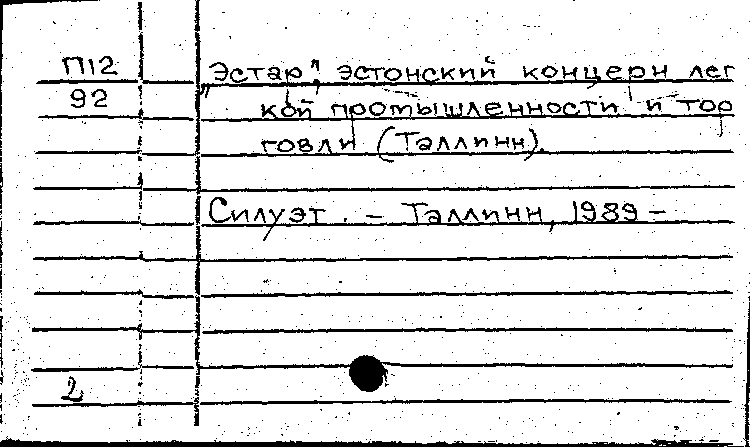 П12 „Эстар", эстонский концерн лег
92 кой промышленности и тор
говли (Таллинн).
Силуэт. – Таллинн, 1989 –
2